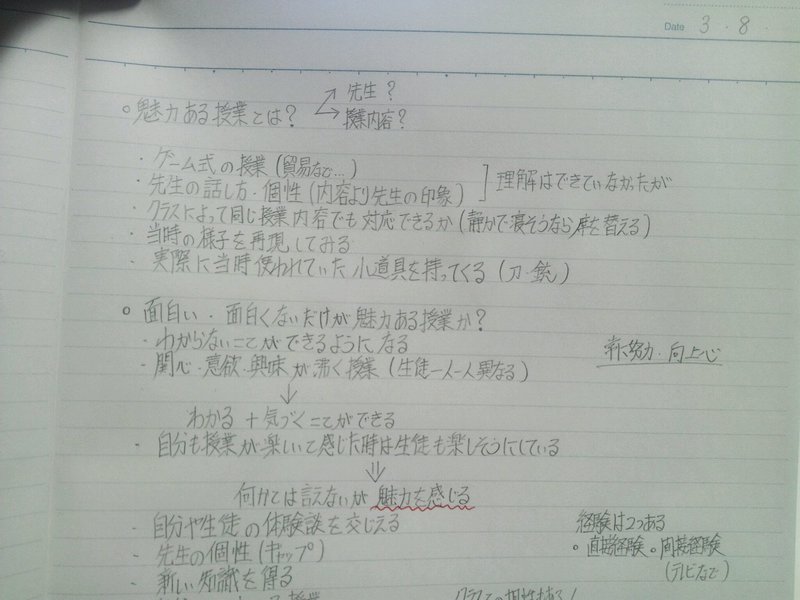 Date 3・8・
○魅力ある授業とは？ → 先生？
→ 授業内容？
・ゲーム式の授業(貿易など…)
・先生の話し方・個性(内容より先生の印象) ］理解はできていなかったが
・クラスによって同じ授業内容でも対応できるか(静かで寝そうなら席を替える)
・当時の様子を再現してみる
・実際に当時使われていた小道具を持ってくる(刀・銃)
○面白い・面白くないだけが魅力ある授業か？
・わからないことができるようになる
常に努力・向上心
・関心・意欲・興味が沸く授業(生徒一人一人異なる)
↓
わかる＋気づくことができる
・自分も授業が楽いて感じた時は生徒も楽しそうにしている
⇓
何かては言えないが魅力を感じる
・自分や生徒の体験談を交じえる
経験は2つある
・先生の個性(キャップ)
○直接経験 ○間接経験
・新しい知識を得る
(テレビなど)